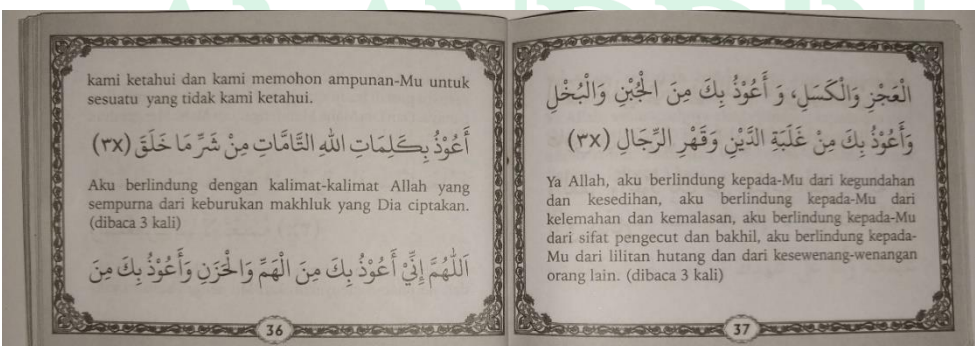 kami ketahui dan kami memohon ampunan-Mu untuk
sesuatu yang tidak kami ketahui.
أَعُوْذُ بِكَلِمَاتِ اللهِ التَّامَّاتِ مِنْ شَرِّ مَا خَلَقَ (٣x)
Aku berlindung dengan kalimat-kalimat Allah yang
sempurna dari keburukan makhluk yang Dia ciptakan.
(dibaca 3 kali)
اَللّٰهُمَّ إِنِّيْ أَعُوْذُ بِكَ مِنَ الْهَمِّ وَالْحَزَنِ وَأَعُوْذُ بِكَ مِنَ
36
الْعَجْزِ وَالْكَسَلِ، وَ أَعُوْذُ بِكَ مِنَ الْجُبْنِ وَالْبُخْلِ
وَأَعُوْذُ بِكَ مِنْ غَلَبَةِ الدَّيْنِ وَقَهْرِ الرِّجَالِ (٣x)
Ya Allah, aku berlindung kepada-Mu dari kegundahan
dan kesedihan, aku berlindung kepada-Mu dari
kelemahan dan kemalasan, aku berlindung kepada-Mu
dari sifat pengecut dan bakhil, aku berlindung kepada-
Mu dari lilitan hutang dan dari kesewenang-wenangan
orang lain. (dibaca 3 kali)
37